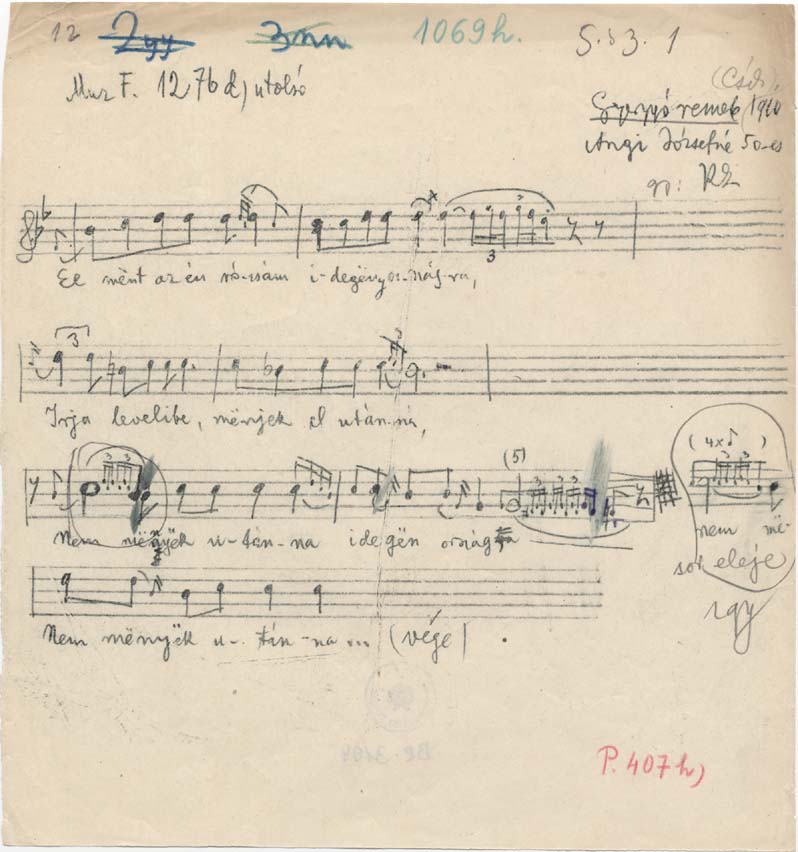 12 2gy 3nn 1069h. 5. b3. 1
Muz F. 1276 d) utolsó
(Csík),
Gyergyóremete 1910
Angi Józsefné 50-es
gy:
3 3
El mënt az én ró-zsám i-degényor-szág-ra,
3 3
Irja levelibe, mënjek el után-na,
(5) (4x♪)
3 3 3 3 3 3
Nem mënyëk u-tán-na idegën országra
nem më-
sor eleje
így
Nem mënyëk u-tán-na ... (vége)
P. 407h)